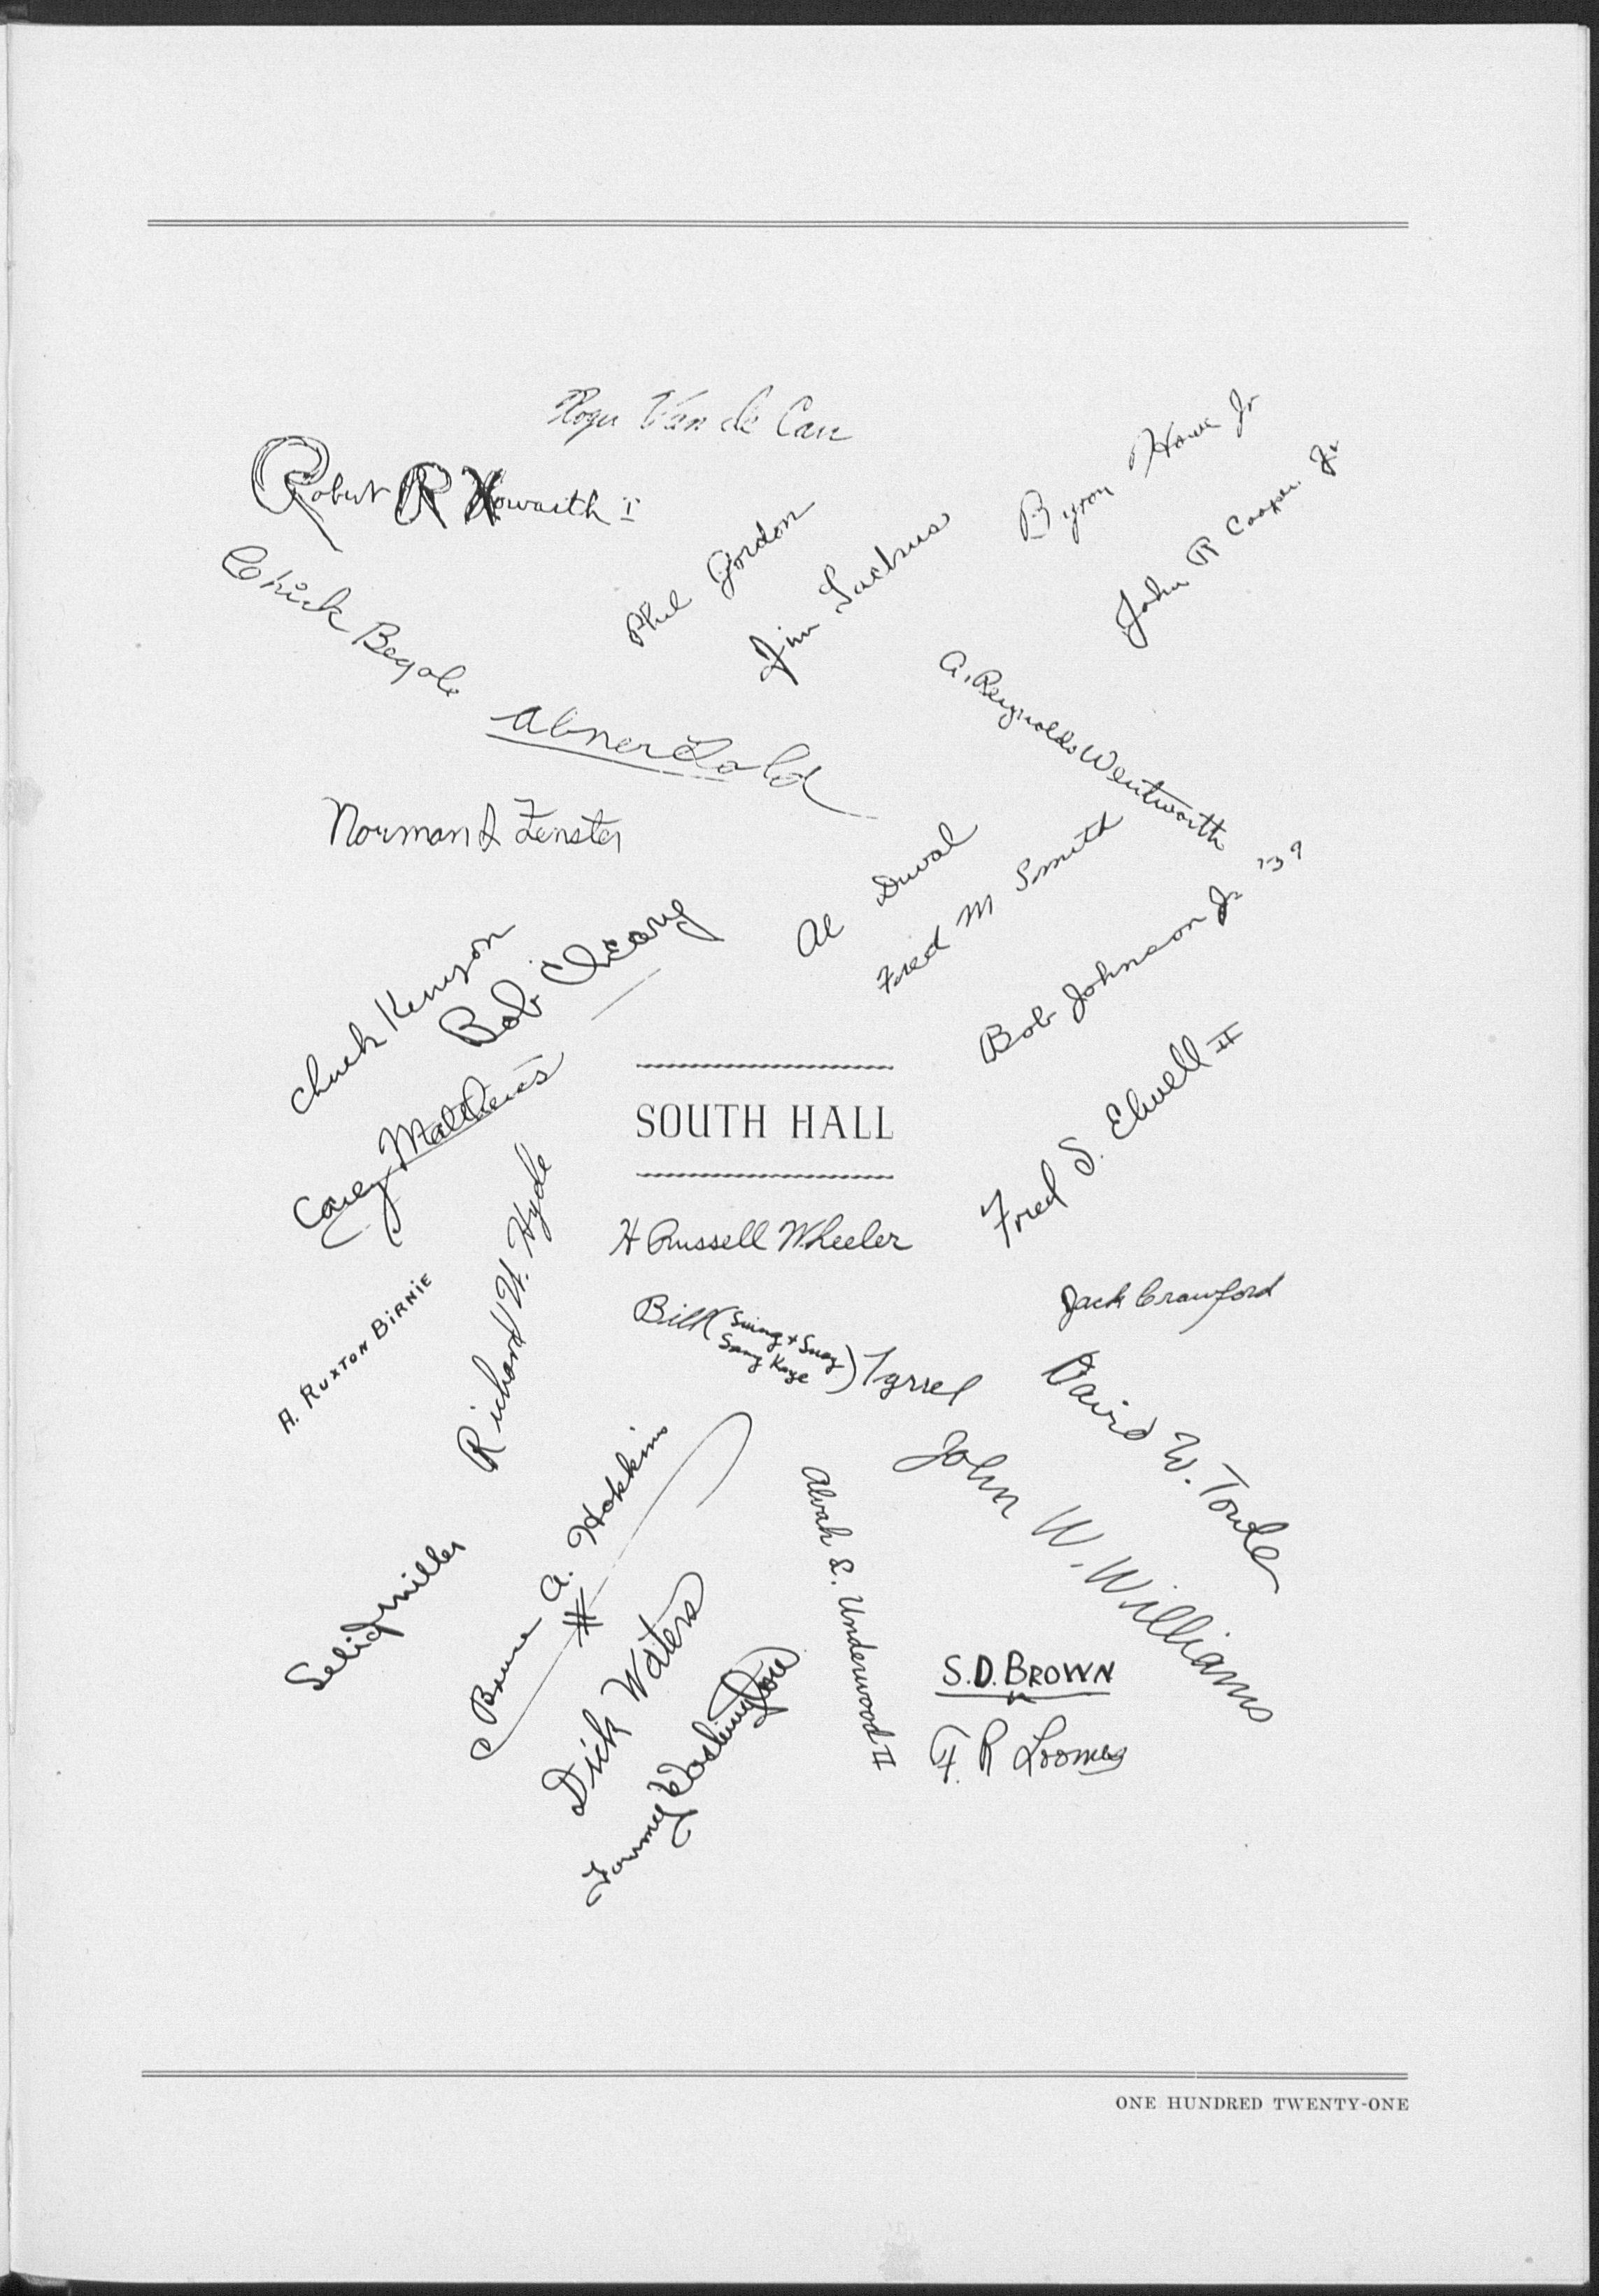 Roger Van de Carr
Robert R Howarth I
Byron Howe Jr
John R Cooper Jr
Phil Gordon
Jim Sachus
Chick Begole
A. Reynolds Wentworth
Abner
Norman L Fenster
Al Duval
Fred M Smith
Bob Johnson Jr '39
Chuck Kenyon
Bob Cleary
Carey Matthews
Fred S. Elwell II
SOUTH HALL
Richard W. Hyde
H Russell Wheeler
A. RUXTON BIRNIE
Jack Crawford
Bill (Swing + Sway
Samy Kaye) Tyrrel
David W. Towler
John W. Williams
Bruce A. Hopkins
Alvah L. Underwood II
Selig Miller
Dick Waters
Tommy Washington
S.D. BROWN
F. R Loomis
ONE HUNDRED TWENTY-ONE